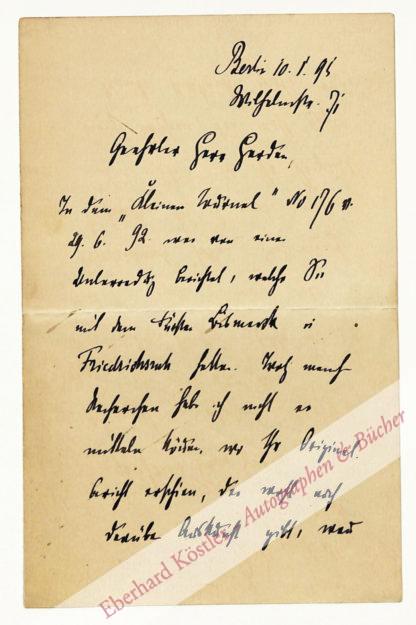 Berlin 10. I. 95
Wilhelmstr. 71
Geehrter Herr Harden,
In dem „Kleinen Journal" No 176 v.
29. 6. 92. war von einer
Unterredung berichtet, welche Sie
mit dem Fürsten Bismarck in
Friedrichsruh hatten. Trotz
Recherchen habe ich nicht er
mitteln können, wo Ihr Original
bericht erschien, der wohl noch
darüber Auskunft gibt,
Eberhard Köstler Autographen & Bücher